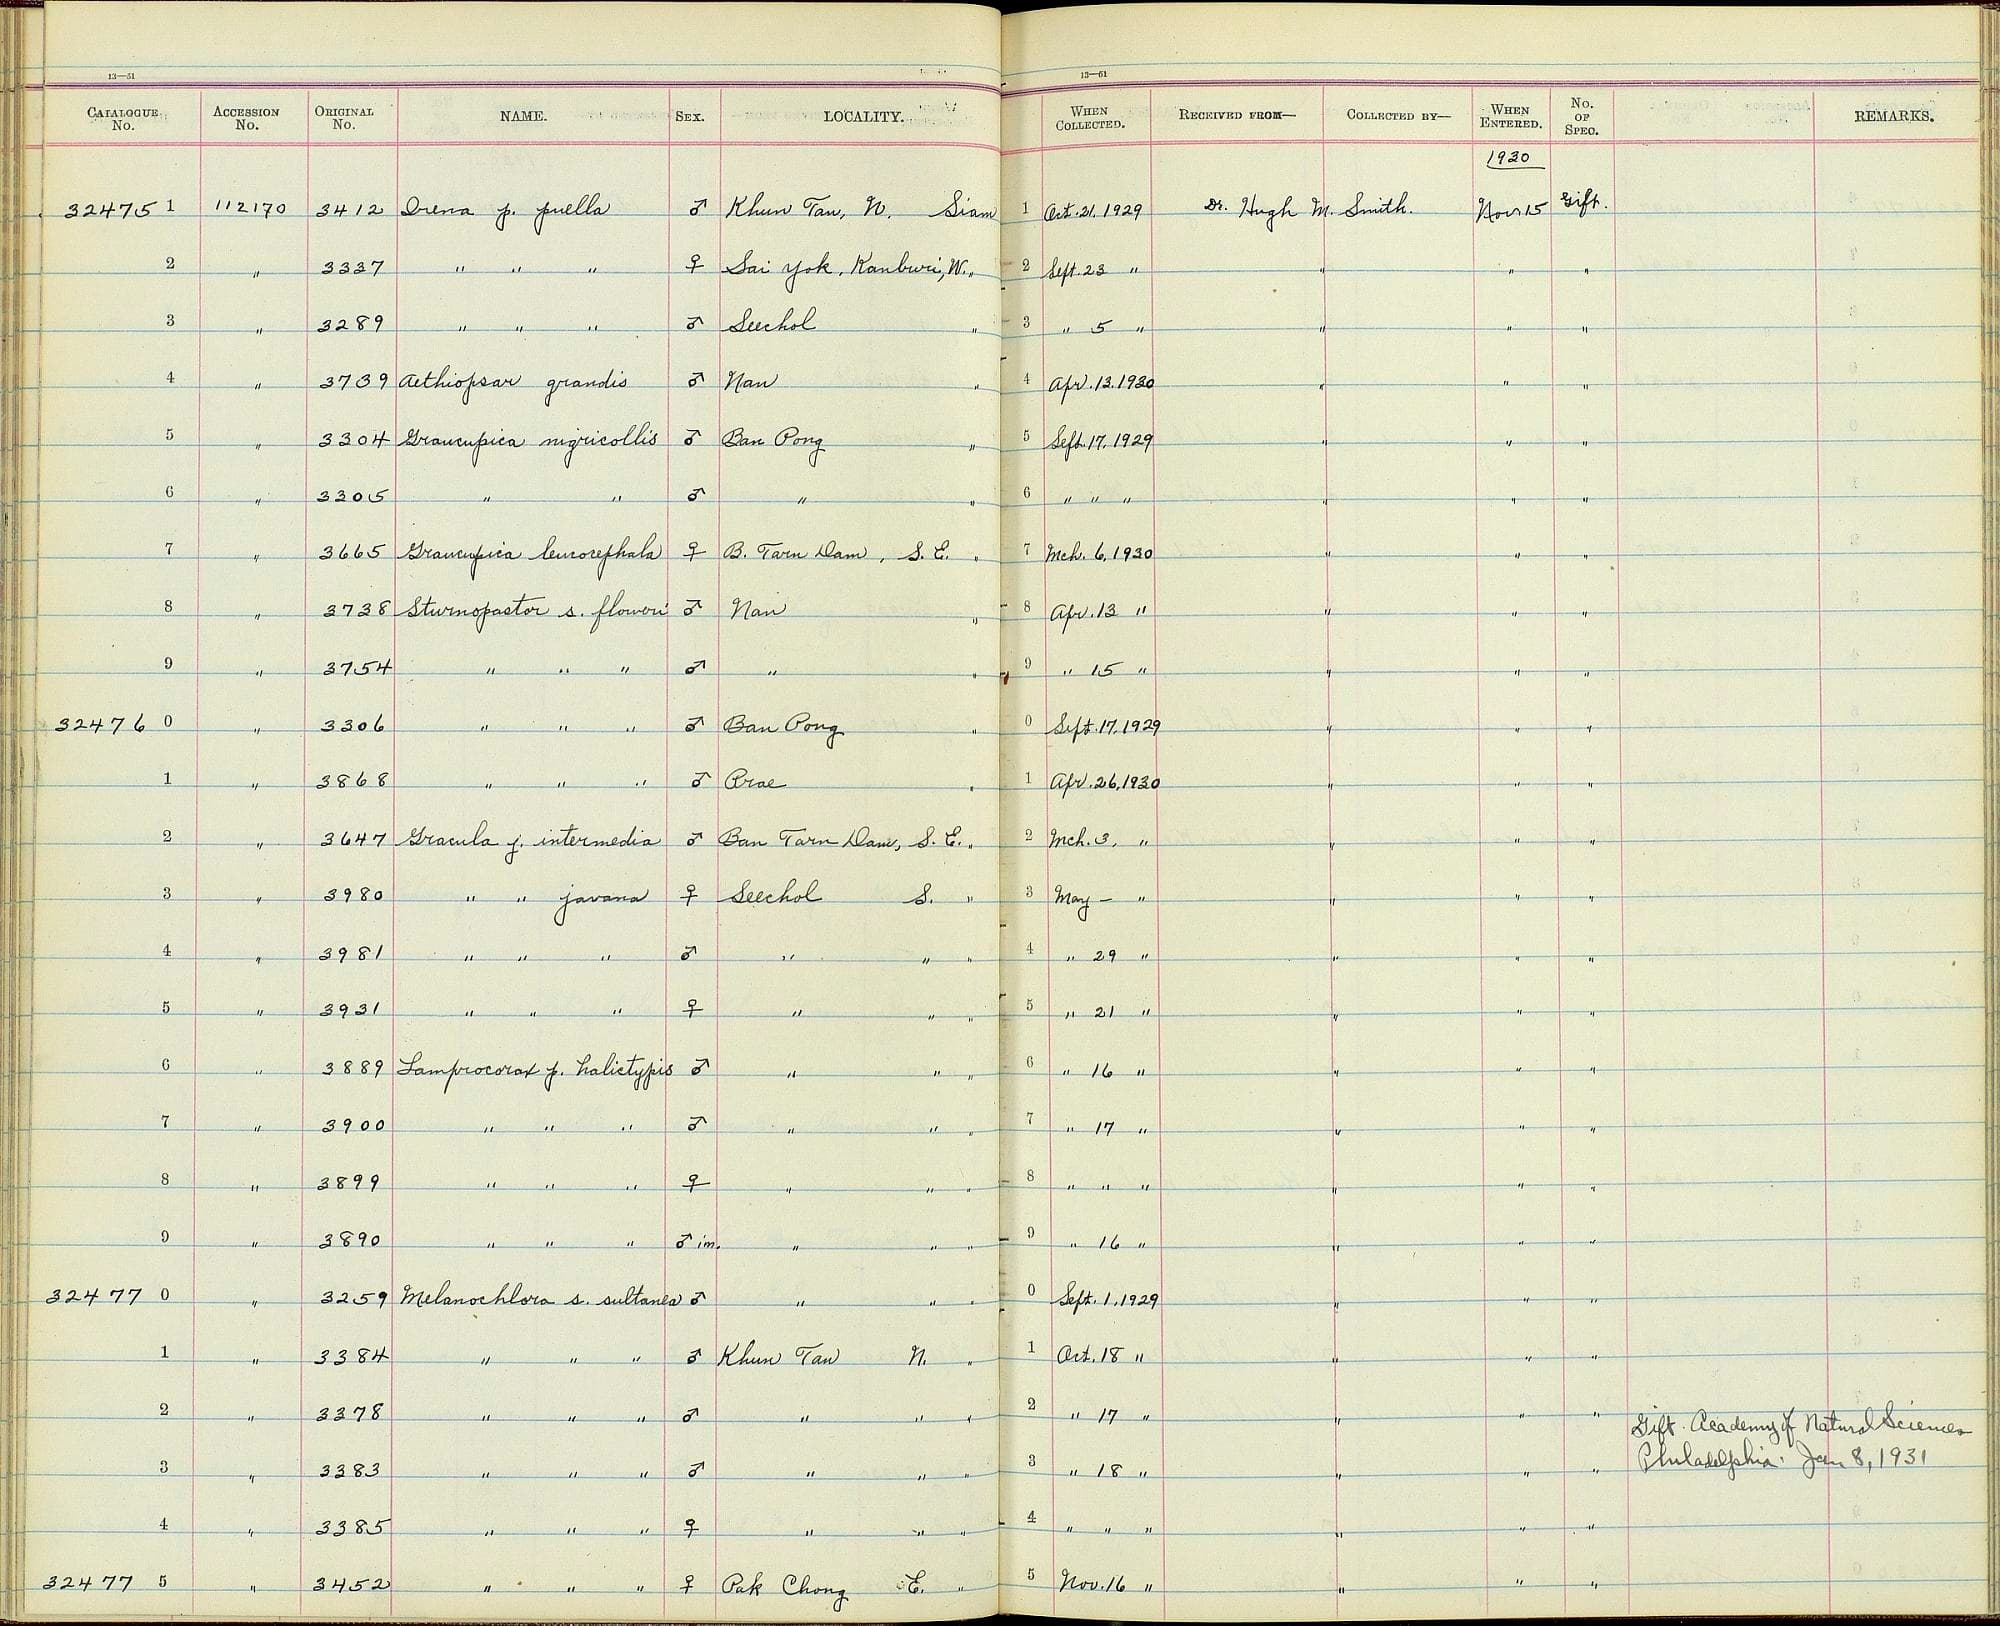 13—51
13—51
CATALOGUE No. ACCESSION No. ORIGINAL No. NAME. SEX. LOCALITY. WHEN COLLECTED. RECEIVED FROM— COLLECTED BY— WHEN ENTERED. No. OF SPEC. REMARKS.
1930
32475 1 112170 3412 Irena p. puella ♂ Khun Tan, N. Siam 1 Oct. 21. 1929 Dr. Hugh M. Smith. Nov 15 Gift.
2 " 3337 " " " ♀ Sai Yok, Kanburi, W. " 2 Sept. 23 " " " "
3 " 3289 " " " ♂ Seechol " 3 " 5 " " " "
4 " 3739 Aethiopsar grandis ♂ Nan " 4 Apr. 13. 1930 " " "
5 " 3304 Graucupica nigricollis ♂ Ban Pong " 5 Sept. 17. 1929 " " "
6 " 3305 " " ♂ " " 6 " " " " " "
7 " 3665 Graucupica leucocephala ♀ B. Tarn Dam, S. E. " 7 Mch. 6, 1930 " " "
8 " 3738 Sturnopastor s. floweri ♂ Nan " 8 Apr. 13 " " " "
9 " 3754 " " " ♂ " " 9 " 15 " " " "
32476 0 " 3306 " " " ♂ Ban Pong " 0 Sept. 17, 1929 " " "
1 " 3868 " " " ♂ Prae " 1 Apr. 26, 1930 " " "
2 " 3647 Gracula j. intermedia ♂ Ban Tarn Dam, S. E. " 2 Mch. 3, " " " "
3 " 3980 " " javana ♀ Seechol S. " 3 May — " " " "
4 " 3981 " " " ♂ " " " 4 " 29 " " " "
5 " 3931 " " " ♀ " " " 5 " 21 " " " "
6 " 3889 Lamprocorax p. halictypis ♂ " " " 6 " 16 " " " "
7 " 3900 " " " ♂ " " " 7 " 17 " " " "
8 " 3899 " " " ♀ " " " 8 " " " " " "
9 " 3890 " " " ♂ im. " " " 9 " 16 " " " "
32477 0 " 3259 Melanochlora s. sultanea ♂ " " " 0 Sept. 1, 1929 " " "
1 " 3384 " " " ♂ Khun Tan N. " 1 Oct. 18 " " " "
2 " 3378 " " " ♂ " " " 2 " 17 " " " "
Gift Academy of Natural Sciences
3 " 3383 " " " ♂ " " " 3 " 18 " " " " Philadelphia. Jan 8, 1931
4 " 3385 " " " ♀ " " " 4 " " " " " "
32477 5 " 3452 " " " ♀ Pak Chong E. " 5 Nov. 16 " " " "